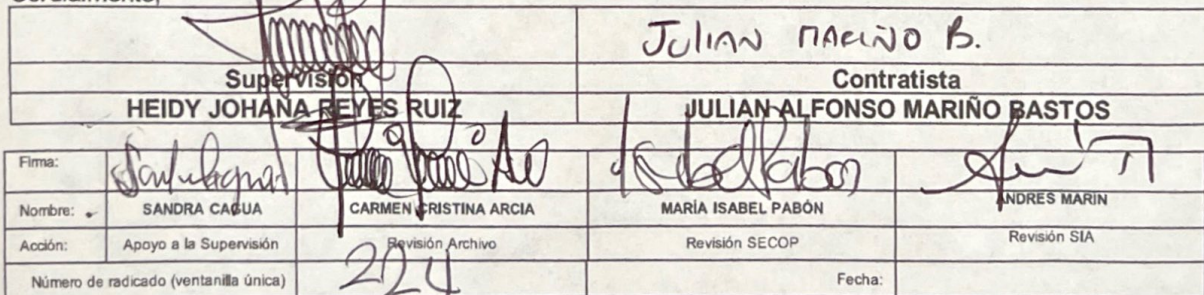 Cordialmente,
JULIAN MARIÑO B.
Supervisión Contratista
HEIDY JOHANA REYES RUIZ JULIAN ALFONSO MARIÑO BASTOS
Firma:
Nombre: SANDRA CAGUA CARMEN CRISTINA ARCIA MARÍA ISABEL PABÓN ANDRES MARIN
Acción: Apoyo a la Supervisión Revisión Archivo Revisión SECOP Revisión SIA
Número de radicado (ventanilla única) 224 Fecha: